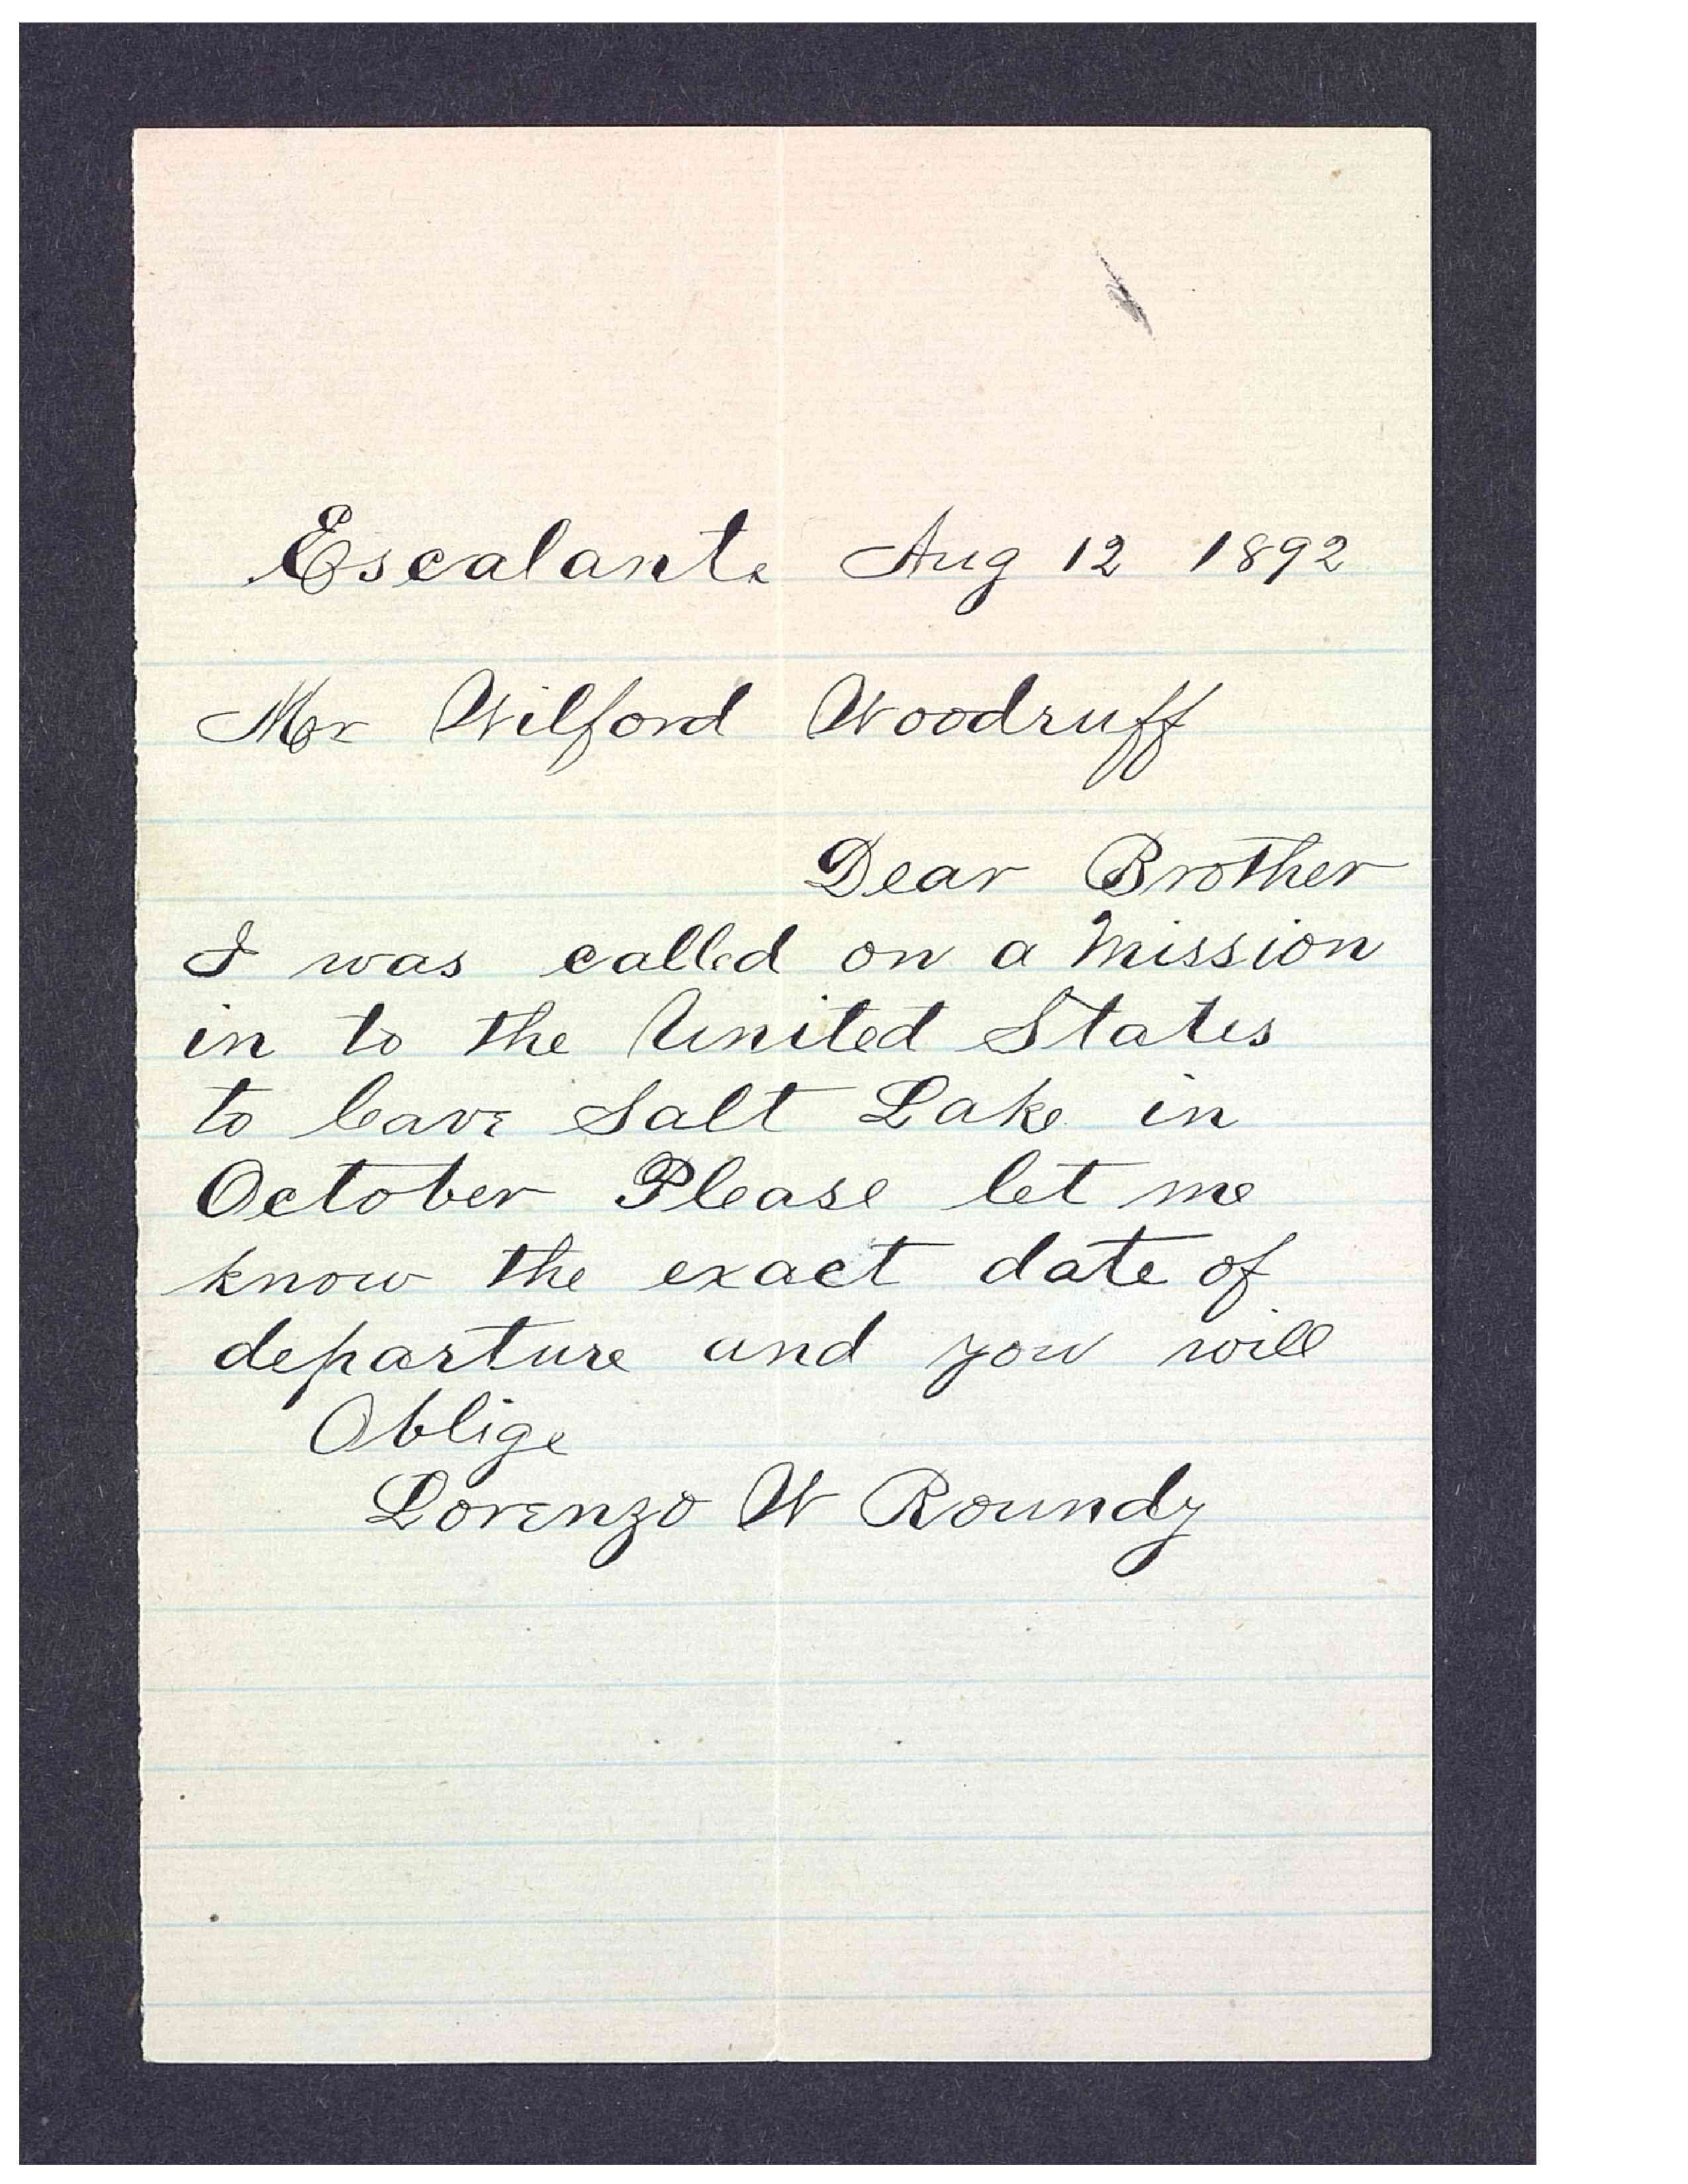 Escalante Aug 12 1892
Mr Wilford Woodruff
Dear Brother
I was called on a Mission
in to the United States
to leave Salt Lake in
October Please let me
know the exact date of
departure and you will
Oblige
Lorenzo W Roundy